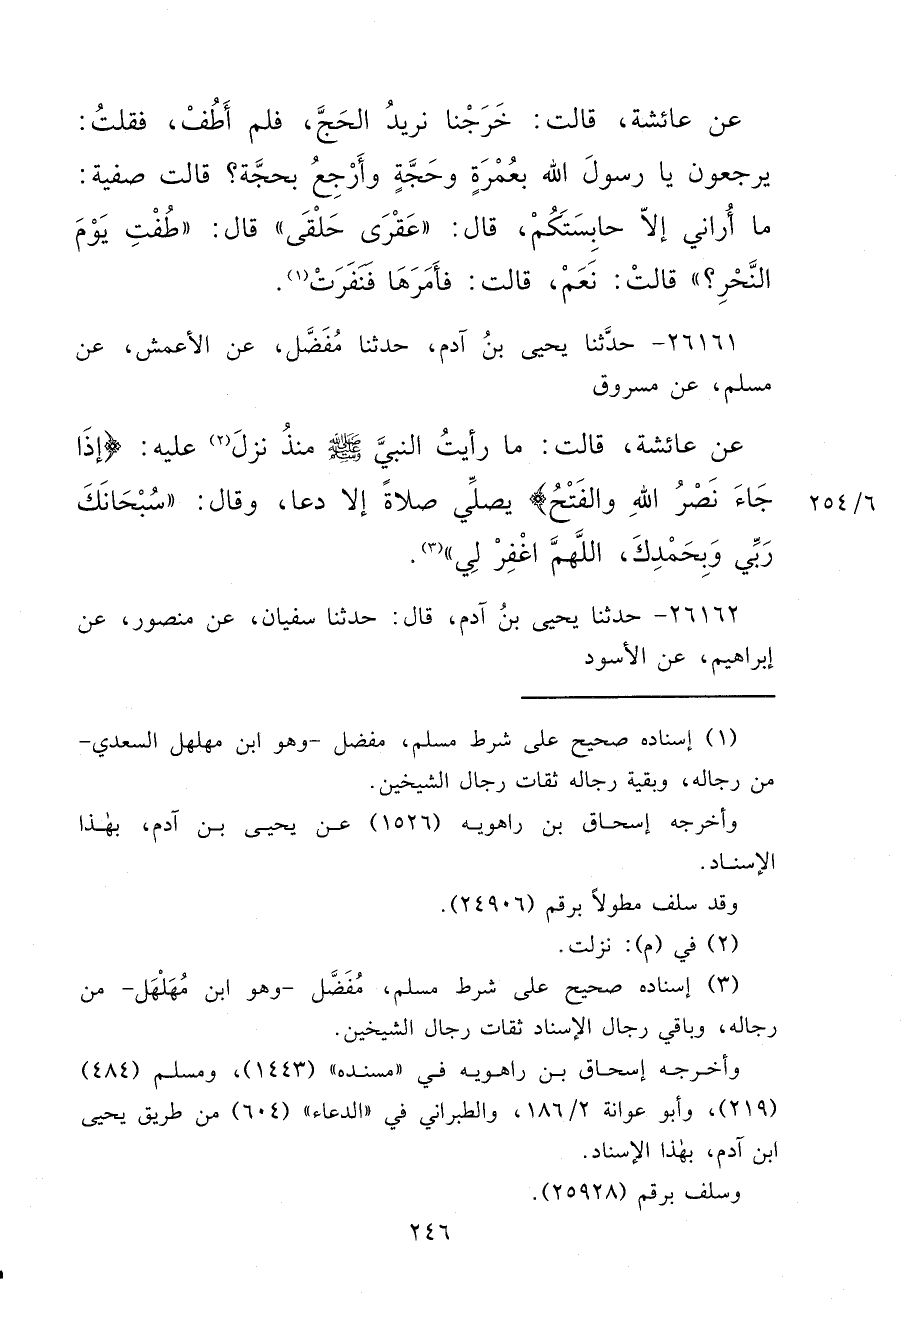 عن عائشة، قالت: خَرَجْنا نريدُ الحَجَّ، فلم أَطُفْ، فقلتُ:
يرجعون يا رسولَ الله بعُمْرَةٍ وحَجَّةٍ وأَرْجِعُ بحجَّة؟ قالت صفية:
ما أُراني إلاّ حابِسَتَكُمْ، قال: «عَقْرَى حَلْقَى» قال: «طُفْتِ يَوْمَ
النَّحْرِ؟» قالتْ: نَعَمْ، قالت: فأَمَرَهَا فَنَفَرَتْ(١).
٢٦١٦١- حدَّثنا يحيى بنُ آدم، حدثنا مُفَضَّل، عن الأعمش، عن
مسلم، عن مسروق
عن عائشة، قالت: ما رأيتُ النبيَّ ﷺ منذُ نزلَ(٢) عليه: ﴿إذَا
جَاءَ نَصْرُ اللهِ والفَتْحُ﴾ يصلِّي صلاةً إلا دعا، وقال: «سُبْحَانَكَ
٢٥٤/٦
رَبِّي وَبِحَمْدِكَ، اللَّهمَّ اغْفِرْ لِي»(٣).
٢٦١٦٢- حدثنا يحيى بنُ آدم، قال: حدثنا سفيان، عن منصور، عن
إبراهيم، عن الأسود
(١) إسناده صحيح على شرط مسلم، مفضل -وهو ابن مهلهل السعدي-
من رجاله، وبقية رجاله ثقات رجال الشيخين.
وأخرجه إسحاق بن راهويه (١٥٢٦) عن يحيى بن آدم، بهٰذا
الإسناد.
وقد سلف مطولاً برقم (٢٤٩٠٦).
(٢) في (م): نزلت.
(٣) إسناده صحيح على شرط مسلم، مُفَضَّل -وهو ابن مُهَلْهَل- من
رجاله، وباقي رجال الإسناد ثقات رجال الشيخين.
وأخرجه إسحاق بن راهويه في «مسنده» (١٤٤٣)، ومسلم (٤٨٤)
(٢١٩)، وأبو عوانة ١٨٦/٢، والطبراني في «الدعاء» (٦٠٤) من طريق يحيى
ابن آدم، بهٰذا الإسناد.
وسلف برقم (٢٥٩٢٨).
٢٤٦